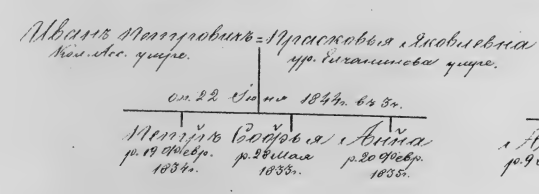 Иванъ Петровичъ = Прасковья Яковлевна
Кол. Асс. умре.
ур. Елчанинова умре.
оп. 22 Iюня 1844г. въ 3г.
Петръ Софья Анна
р. 19 Февр. 1834г.
р. 28 Мая 1833г.
р. 20 Февр. 1835г.